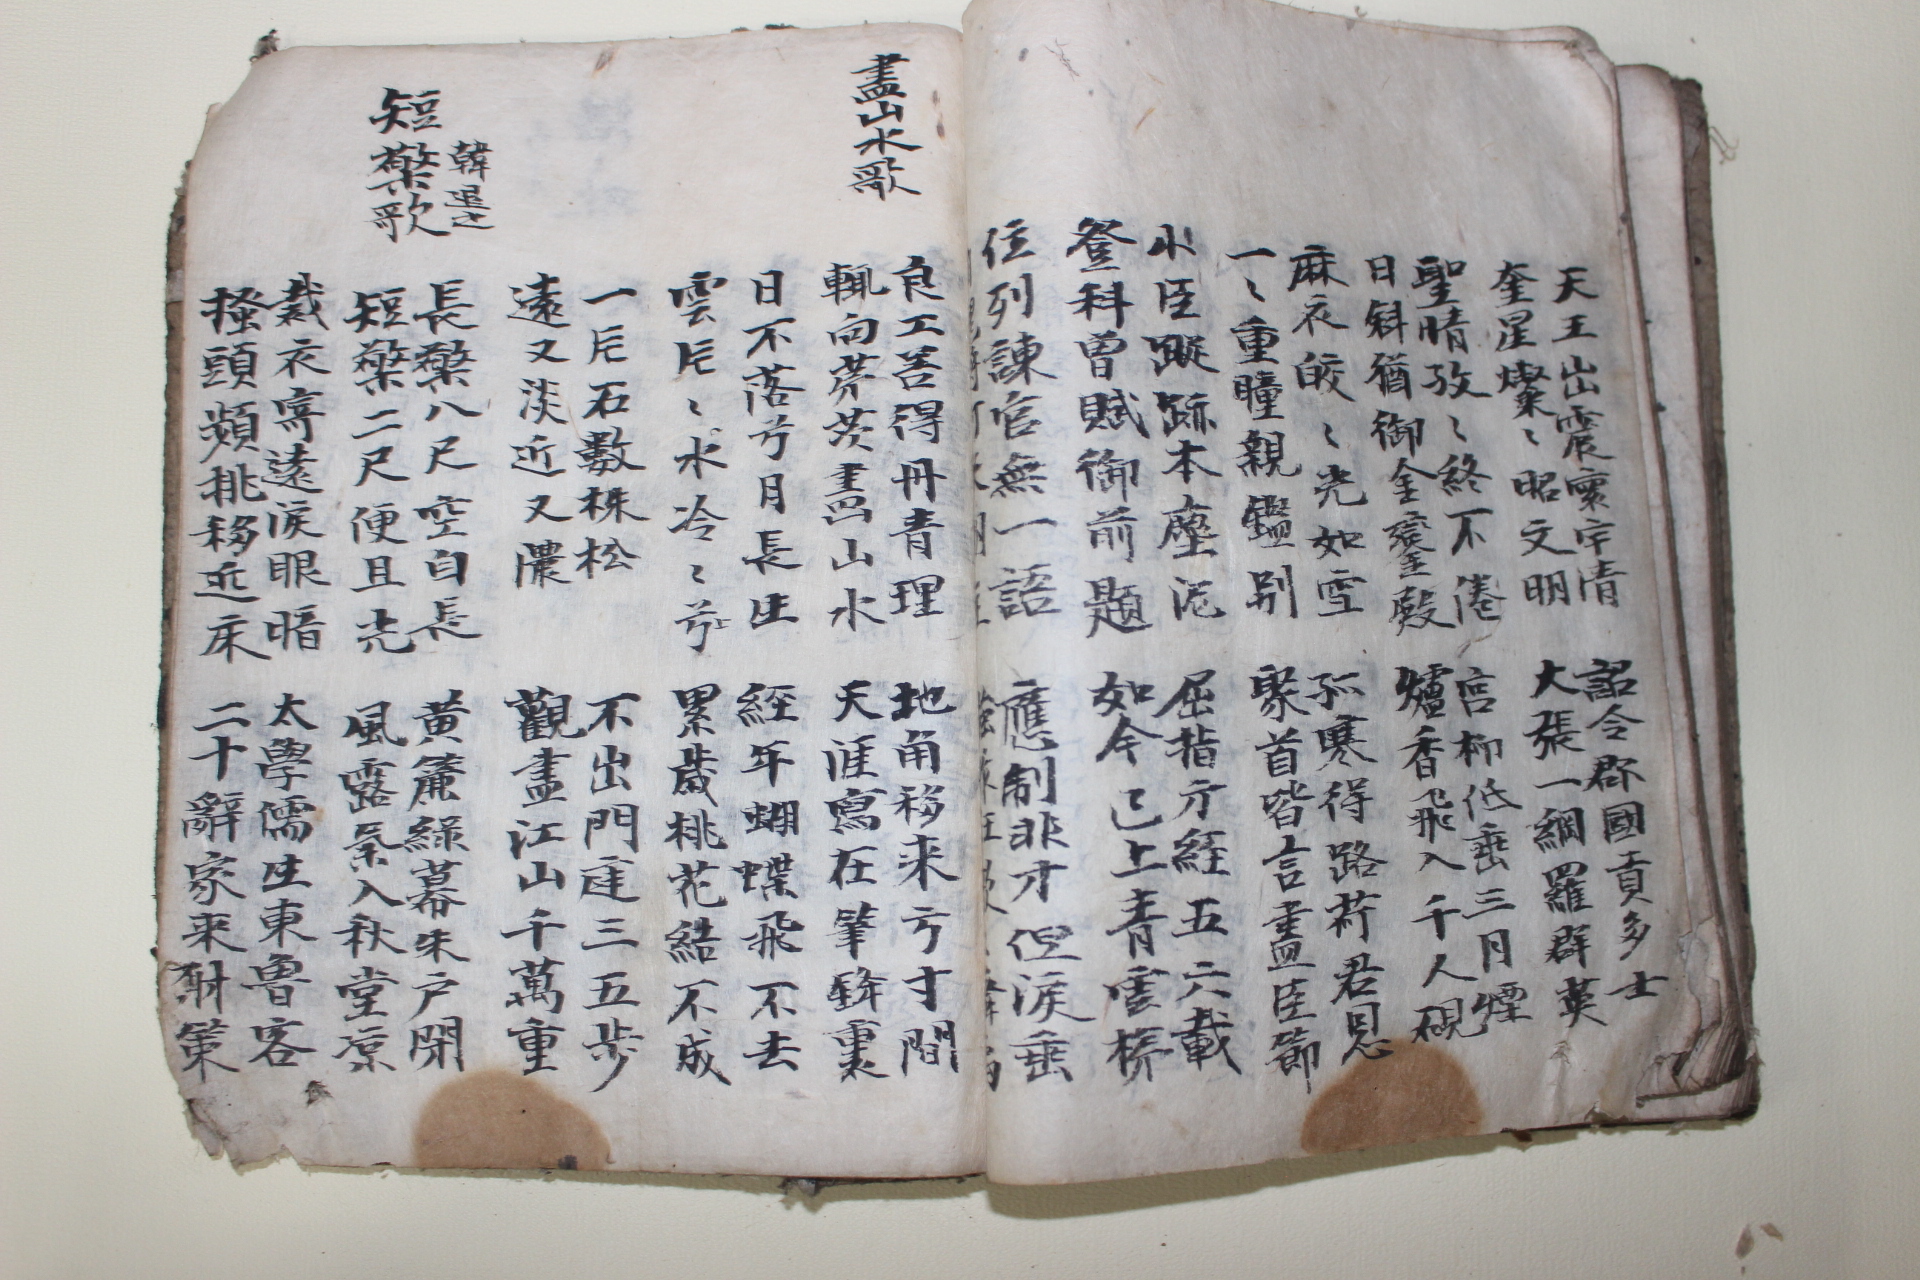 天王出震寰宇清
奎星燦〻昭文明
詔令郡國貢多士
大張一綱羅群英
聖晴孜〻終不倦
日斜猶御金鑾殿
宮柳低垂三月煙
爐香飛入千人硯
麻衣皎〻光如雪
一〻重瞳親鑑別
孤寒得路荷君恩
聚首皆言盡臣節
小臣蹤跡本塵泥
登科曾賦御前題
屈指方經五六載
如今已上青雲梯
位列諫官無一語
應制非才但淚垂
畫山水歌
良工善得丹青理
輒向茅茨畵山水
地角移来方寸間
天涯寫在筆鋒裏
日不落兮月長生
雲片〻水冷〻兮
經年蝴蝶飛不去
累歲桃花結不成
一片石數株松
遠又淡近又濃
不出門庭三五步
觀盡江山千萬重
短檠歌
韓退之
長檠八尺空自長
短檠二尺便且光
黃簾綠幕朱戶閉
風露氣入秋堂凉
裁衣寄遠淚眼暗
搔頭頻挑移近床
太學儒生東魯客
二十辭家来射策